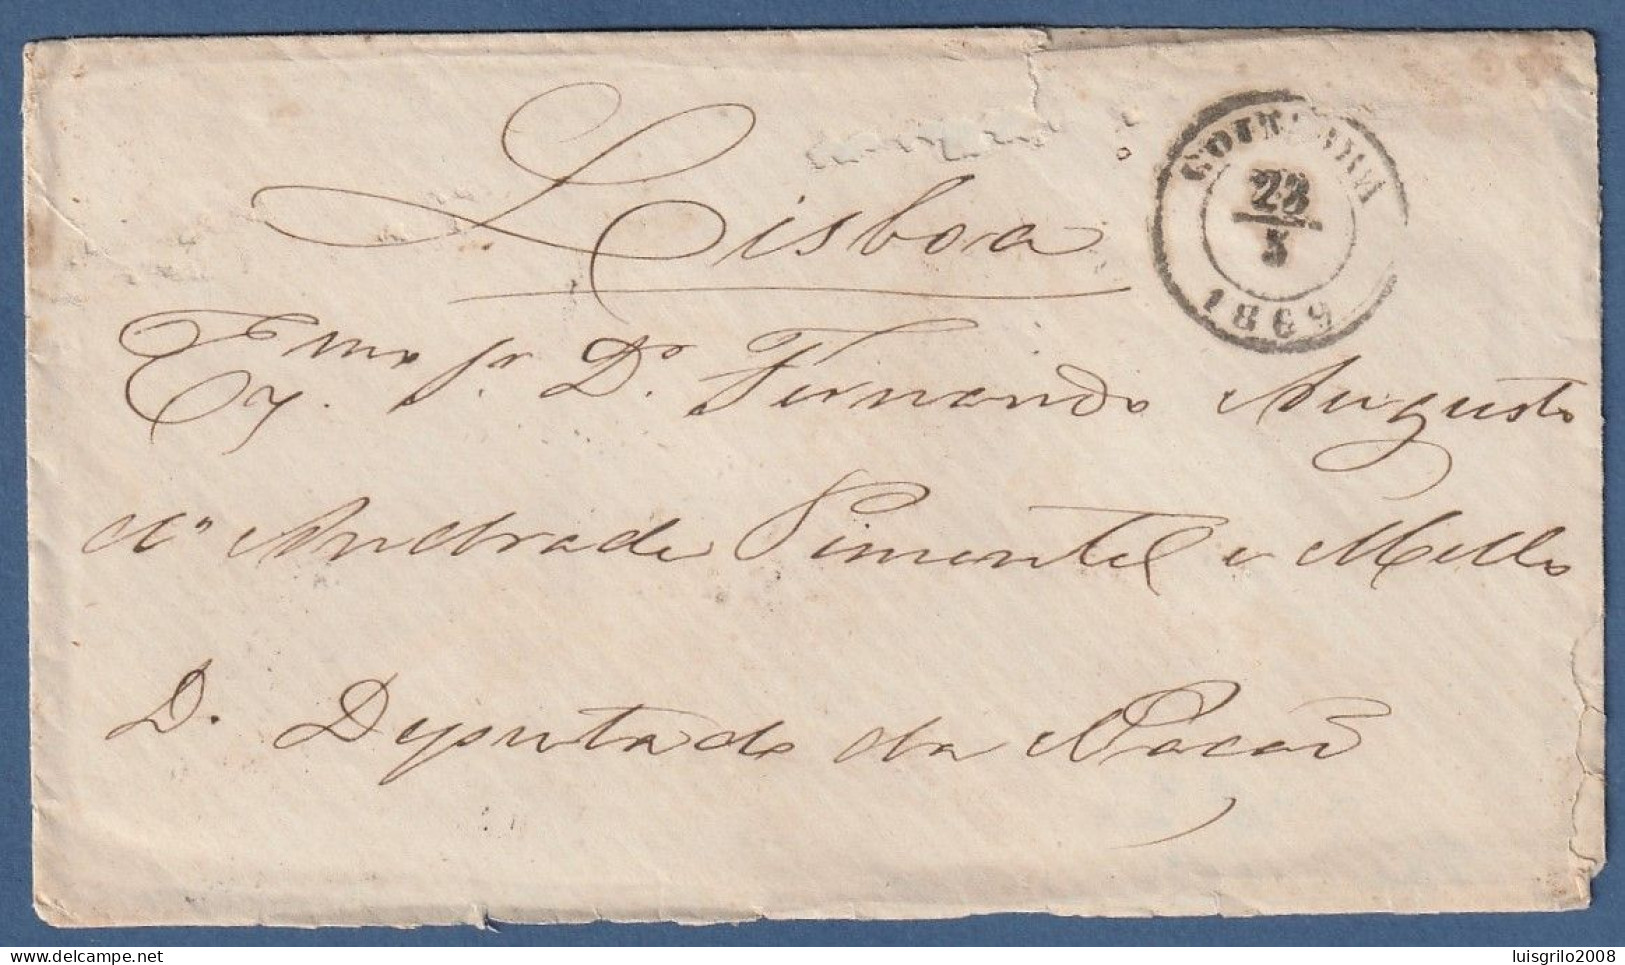 Lisboa
COIMBRA
23
5
1869
Exmo Sr. Dr. Fernando Augusto
d'Andrade Pimentel e Mello
D. Deputado da Nação
luisgrilo2008